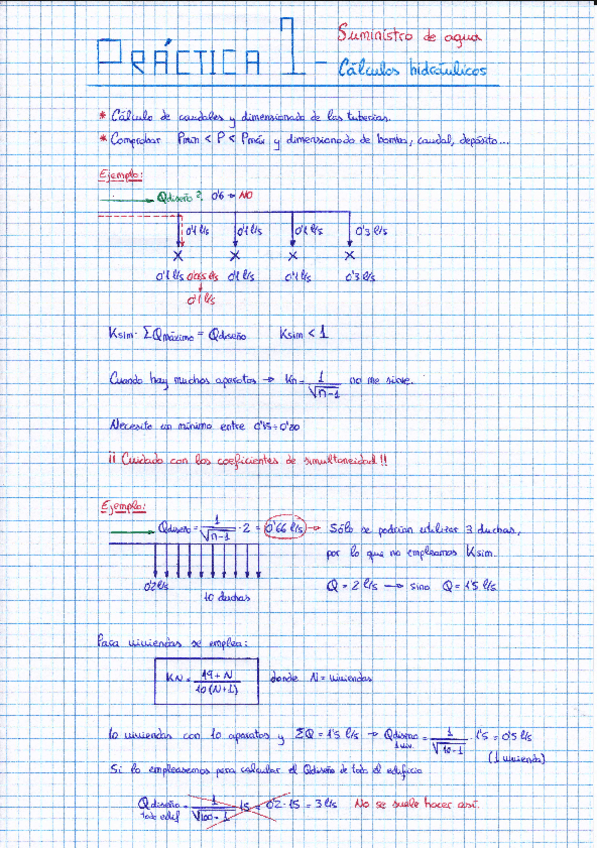 PRÁCTICA 1 - Suministro de agua
Cálculos hidráulicos
* Cálculo de caudales y dimensionado de las tuberías.
* Comprobar Pmín < P < Pmáx y dimensionado de bomba, caudal, depósito...
Ejemplo:
Qdiseño? 0'6 → NO
0'1 l/s 0'1 l/s 0'1 l/s 0'3 l/s
X X X X
0'1 l/s 0'05 l/s 0'1 l/s 0'1 l/s 0'3 l/s
0'1 l/s
Ksim · ΣQmáximo = Qdiseño Ksim < 1
Cuando hay muchos aparatos → Kn = 1/√n-1 no me sirve.
Necesito un mínimo entre 0'15 ÷ 0'20
¡¡ Cuidado con los coeficientes de simultaneidad!!
Ejemplo:
Qdiseño = 1/√n-1 · 2 = 0'66 l/s → Sólo se podrían utilizar 3 duchas,
por lo que no empleamos Ksim.
0'2 l/s
10 duchas
Q = 2 l/s → sino Q = 1'5 l/s
Para viviendas se emplea:
KN = 19+N/10(N+1) donde N = viviendas
10 viviendas con 10 aparatos y ΣQ = 1'5 l/s → Qdiseño 1 viv. = 1/√10-1 · 1'5 = 0'5 l/s
(1 vivienda)
Si lo empleasemos para calcular el Qdiseño de todo el edificio
Qdiseño todo edif = 1/√100-1 · 15 = 0'2 · 15 = 3 l/s No se suele hacer así.